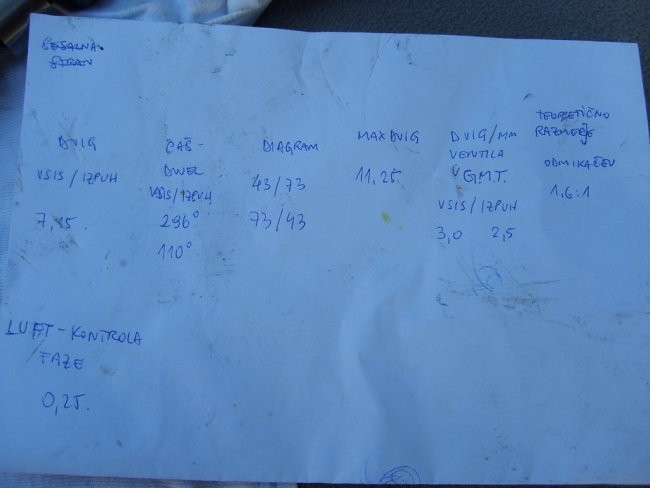 DVIG
VSIS/IZPUH
7,15.
ČAŠ-
DWEL
VSIS/IZPUH
296°
110°
DIAGRAM
43/73
73/43
MAX DVIG
11,25
DVIG/MM
VENTILA
V G.M.T.
VSIS/IZPUH
3,0 2,5
TEORETIČNO
RAZMERJE
ODMIKAČEV
1,6:1
LUFT-KONTROLA
FAZE
0,25.